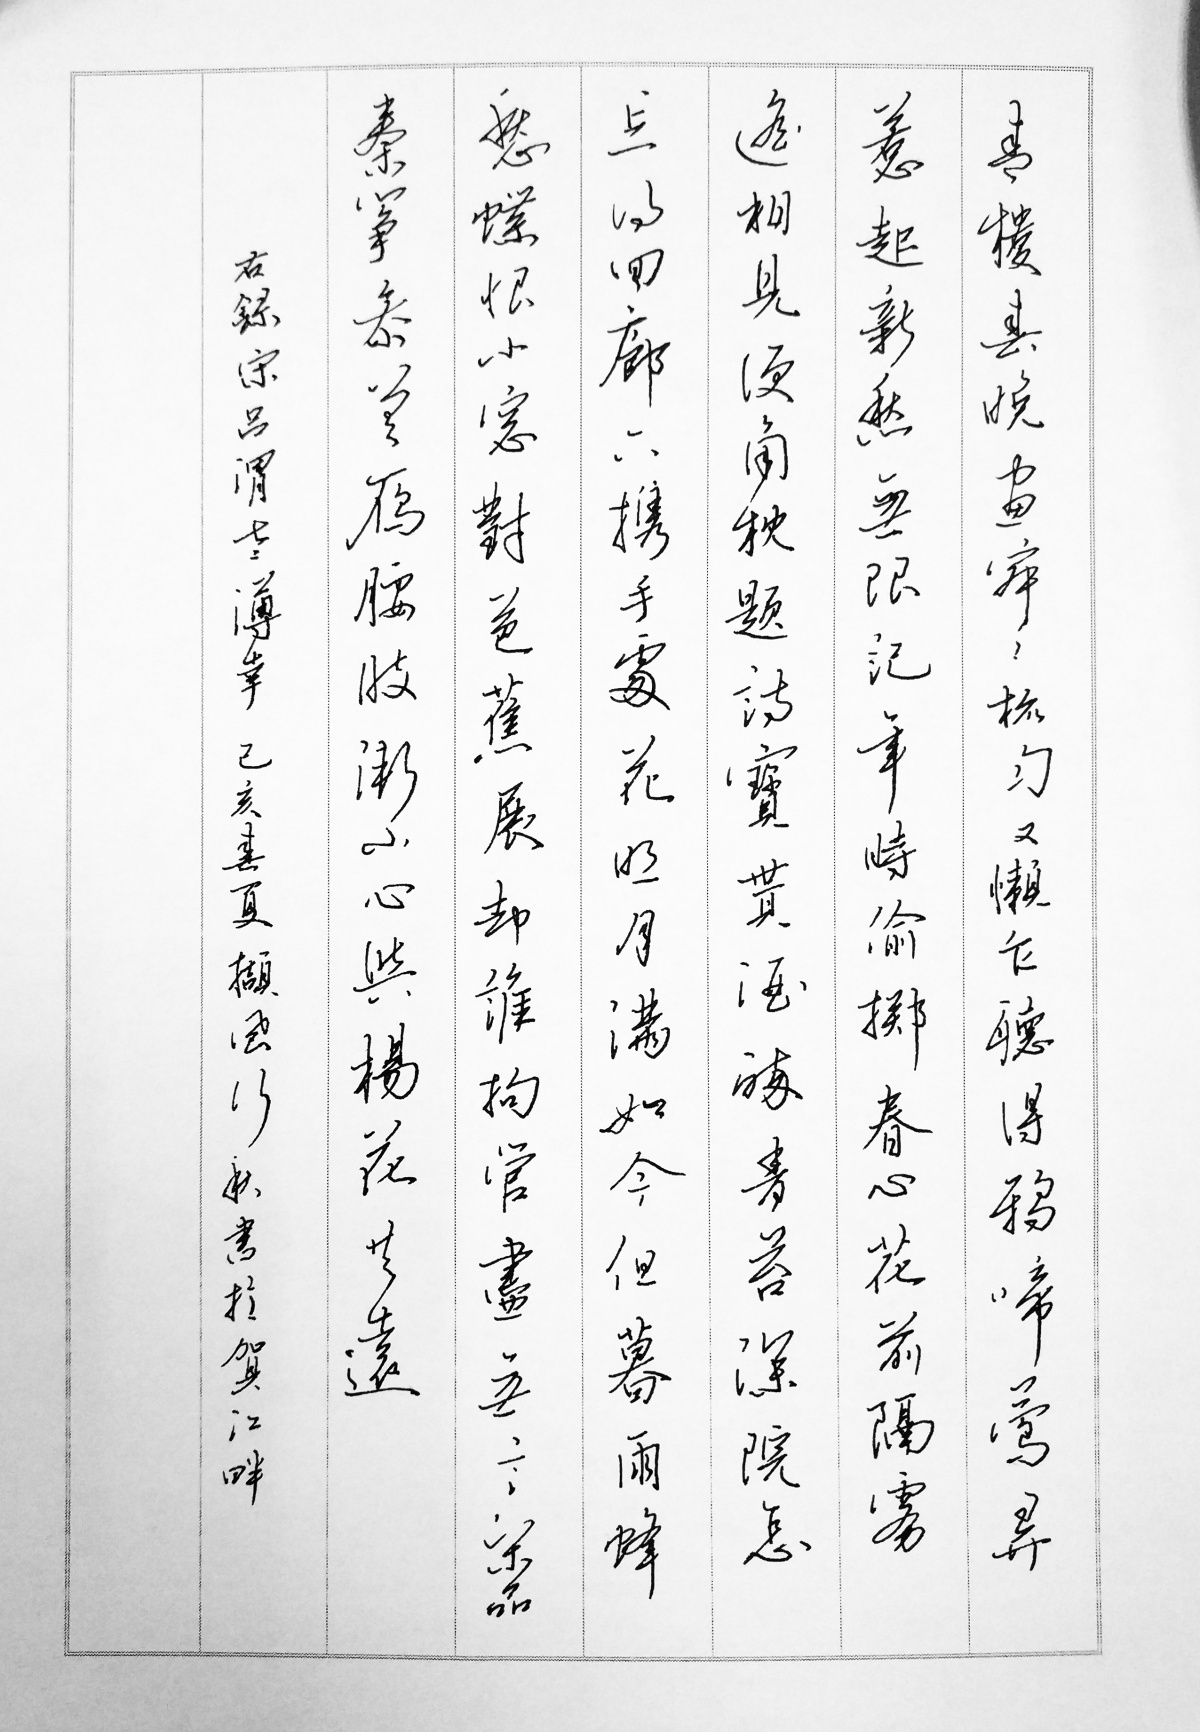 青樓春晚晝寂寂梳勻又懶乍聽得鴉啼鶯弄
惹起新愁無限記年時偷擲春心花前隔霧
遙相見便角枕題詩寶貰酒醉青苔深院怎
忘得回廊下携手處花明月滿如今但暮雨蜂
愁蝶恨小窗對芭蕉展却誰拘管盡無言閑品
秦箏參差雁腰肢漸小心與楊花共遠
右錄宋呂渭老薄幸 己亥春夏擷風行秋書於賀江畔